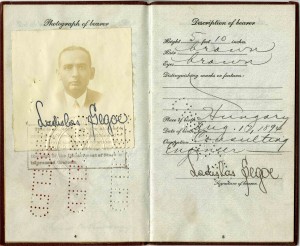 Photograph of bearer
Ladislas Segoe
Description of bearer
Height 5 feet 10 inches
Hair brown
Eyes brown
Distinguishing marks or features:
Place of birth Hungary
Date of birth Aug. 17, 1894
Occupation Consulting
Engineer
Ladislas Segoe
Signature of bearer